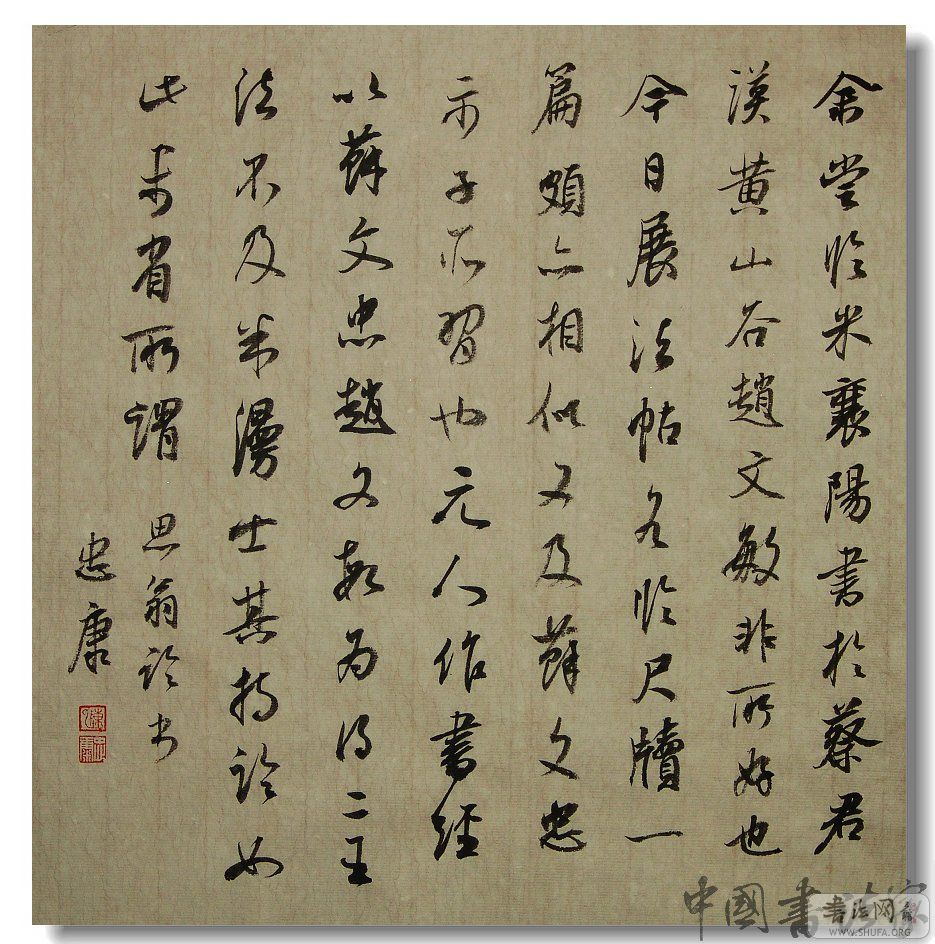 余嘗臨米襄陽書於蔡君
謨黃山谷趙文敏非所好也
今日展法帖各臨尺牘一
篇頗亦相似又及蘇文忠
示子所習也元人作書經
以蘇文忠趙文敏為得二王
法不及米漫士其持論如
此未省所謂 思翁論書
忠康
中國書法家
書法网
WWW.SHUFA.ORG